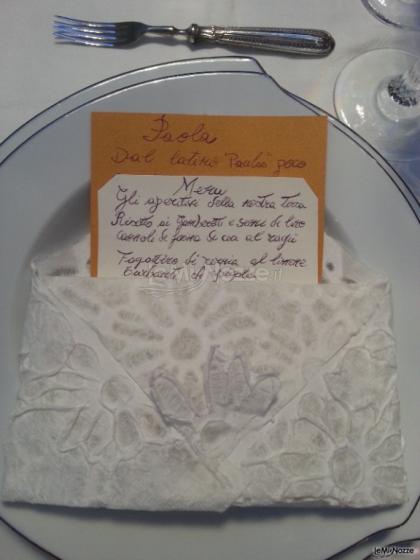 Paola
Dal latino "Paula" poco
Menu
Gli aperitivi della nostra terra
Risotto ai gamberetti e semi di lino
di farina di ceci al ragù
Fagottino di al limone
di spigola
leMieNozze.it